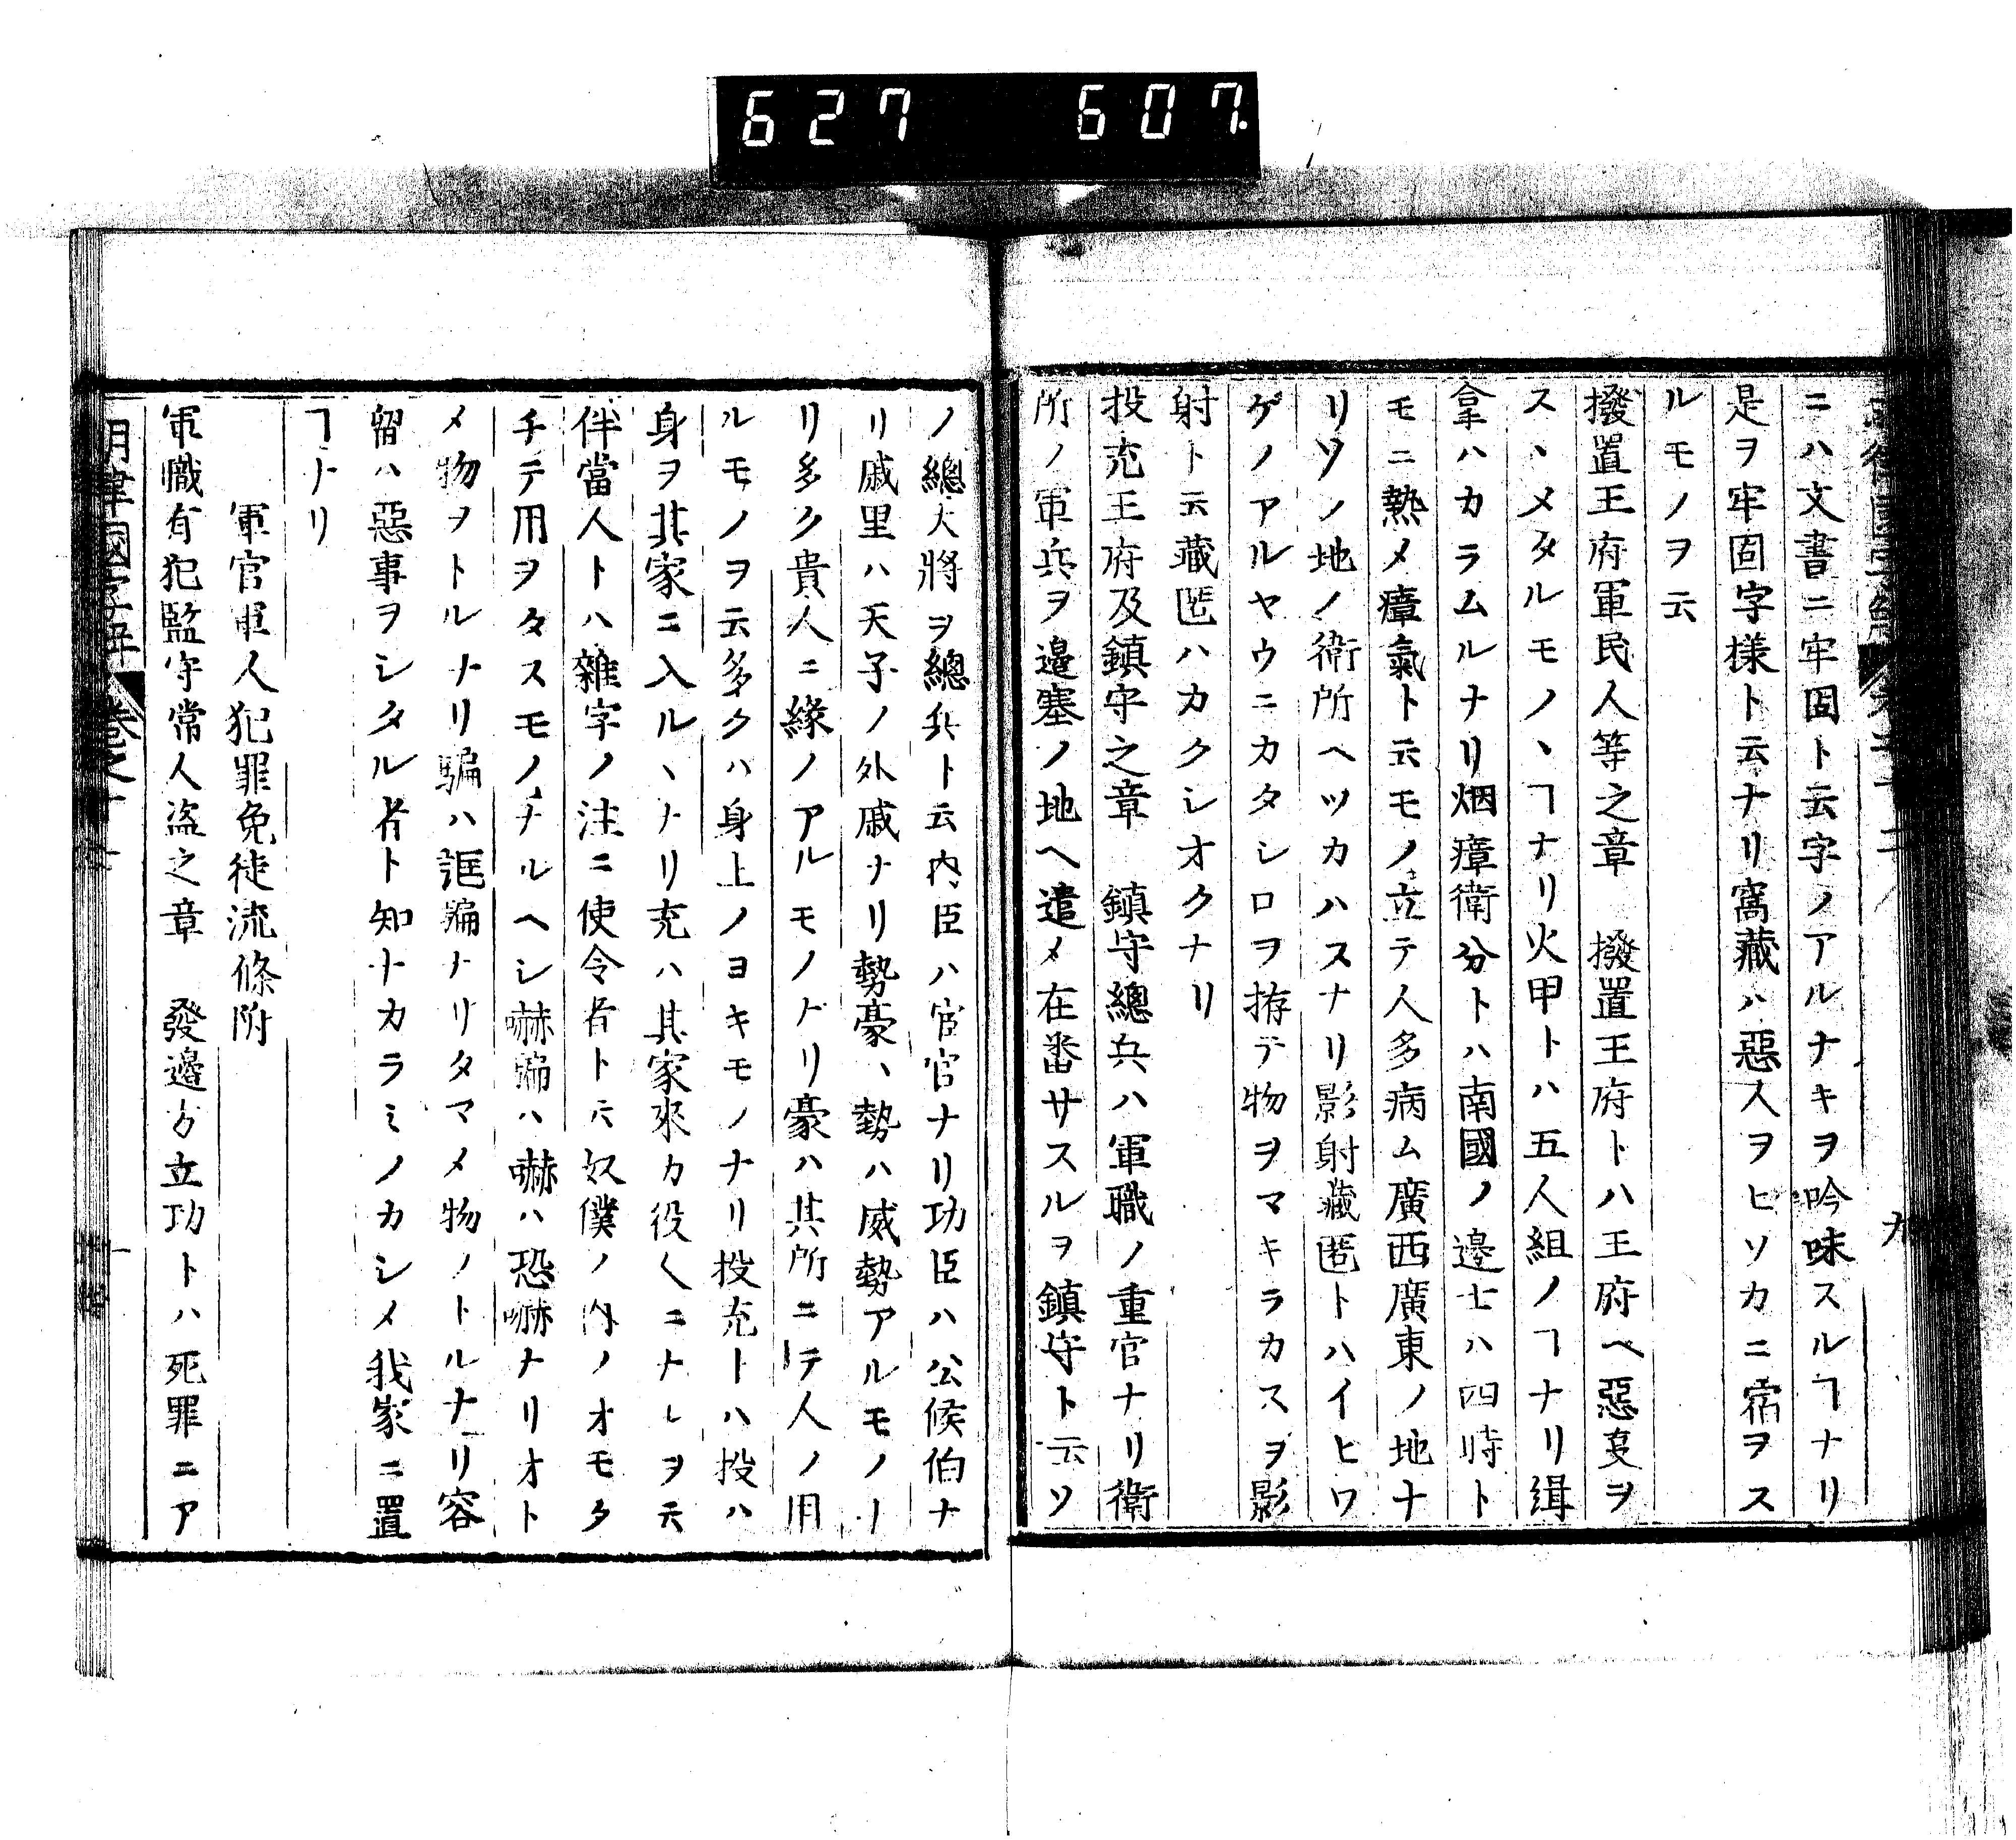 627 607
ニハ文書ニ牢固ト云字ノアルナキヲ吟味スルヿナリ
是ヲ牢固字様ト云ナリ窩藏ハ惡人ヲヒソカニ宿ヲス
ルモノヲ云
撥置王府軍民人等之章　撥置王府トハ王府ヘ惡叓ヲ
スヽメタルモノヽヿナリ火甲トハ五人組ノヿナリ緝
拿ハカラムルナリ烟瘴衛分トハ南國ノ邉七八四時ト
モニ熱メ瘴氣ト云モノ立テ人多病ム廣西廣東ノ地ナ
リソノ地ノ衛所ヘツカハスナリ影射藏匿トハイヒワ
ゲノアルヤウニカタシロヲ拵テ物ヲマキラカスヲ影
射ト云藏匿ハカクシオクナリ
投充王府及鎮守之章　鎮守總兵ハ軍職ノ重官ナリ衛
所ノ軍兵ヲ邉塞ノ地ヘ遣メ在番サスルヲ鎮守ト云ソ
ノ總大將ヲ總兵ト云内臣ハ宦官ナリ功臣ハ公候伯ナ
リ戚里ハ天子ノ外戚ナリ勢豪ヽ勢ハ威勢アルモノノ
リ多ク貴人ニ緣ノアルモノナリ豪ハ其所ニテ人ノ用
ルモノヲ云多クハ身上ノヨキモノナリ投充トハ投ハ
身ヲ其家ニ入ルヽナリ充ハ其家來カ役人ニナレヲ云
伴當人トハ雜字ノ注ニ使令者ト云奴僕ノ内ノオモタ
チテ用ヲタスモノナルヘシ嚇騙ハ嚇ハ恐嚇ナリオト
メ物ヲトルナリ騙ハ誆騙ナリタマメ物ノトルナリ容
畱ハ惡事ヲシタル者ト知ナカラミノカシメ我家ニ置
ヿナリ
軍官軍人犯罪免徒流條附
軍職有犯監守常人盗之章　發邉方立功トハ死罪ニア
明律國字解　卷之十